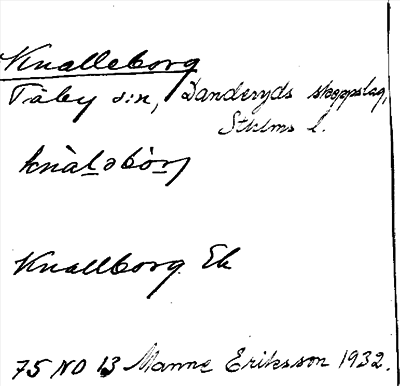 Knalleborg
Täby s:n, Danderyds skeppslag,
Sthlms l.
knàl̲əbòr̲j
Knallborg Ek
75 NO 13 Manne Eriksson 1932.